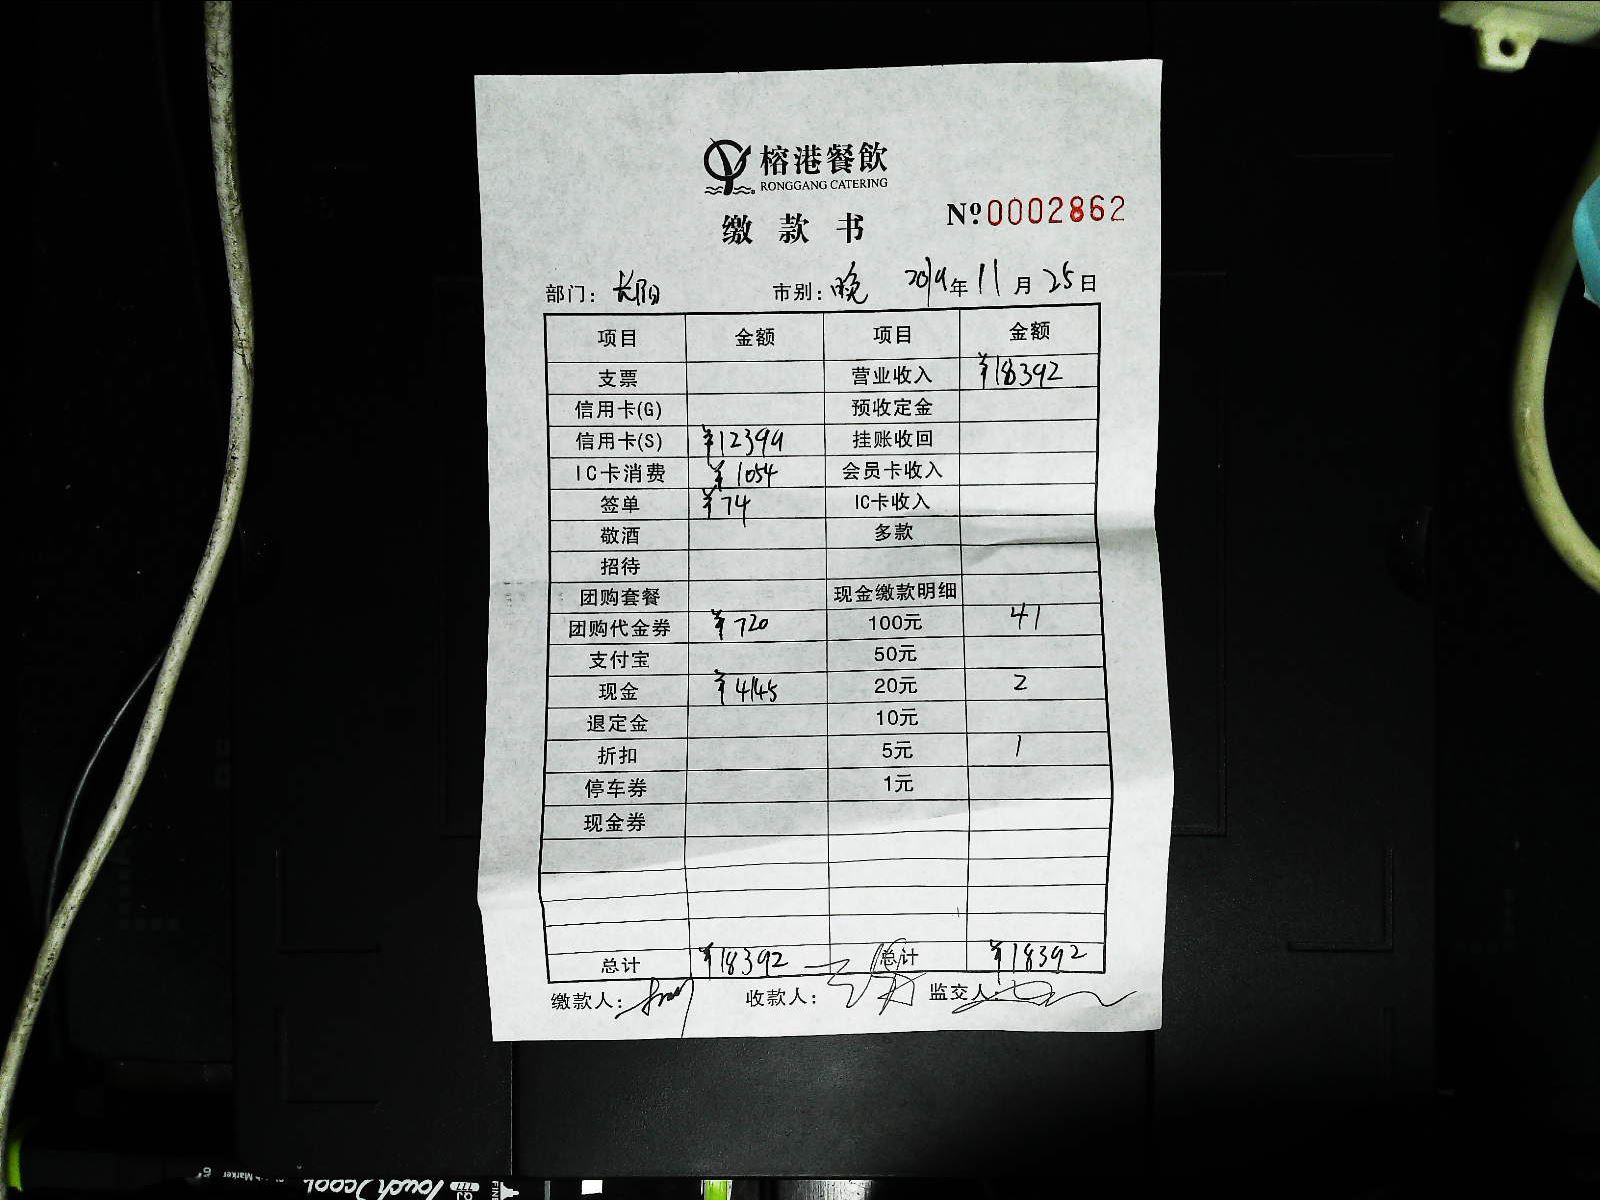 榕港餐飲
RONGGANG CATERING
缴款书 Nº0002862
部门: 长阳 市别: 晚 2019年11月25日
项目 金额 项目 金额
支票 营业收入 ¥18392
信用卡(G) 预收定金
信用卡(S) ¥12399 挂账收回
IC卡消费 ¥1054 会员卡收入
签单 ¥74 IC卡收入
敬酒 多款
招待
团购套餐 现金缴款明细
团购代金券 ¥720 100元 41
支付宝 50元
现金 ¥4145 20元 2
退定金 10元
折扣 5元 1
停车券 1元
现金券
总计 ¥18392 总计 ¥18392
缴款人: 收款人: 监交人:
Touch3cool